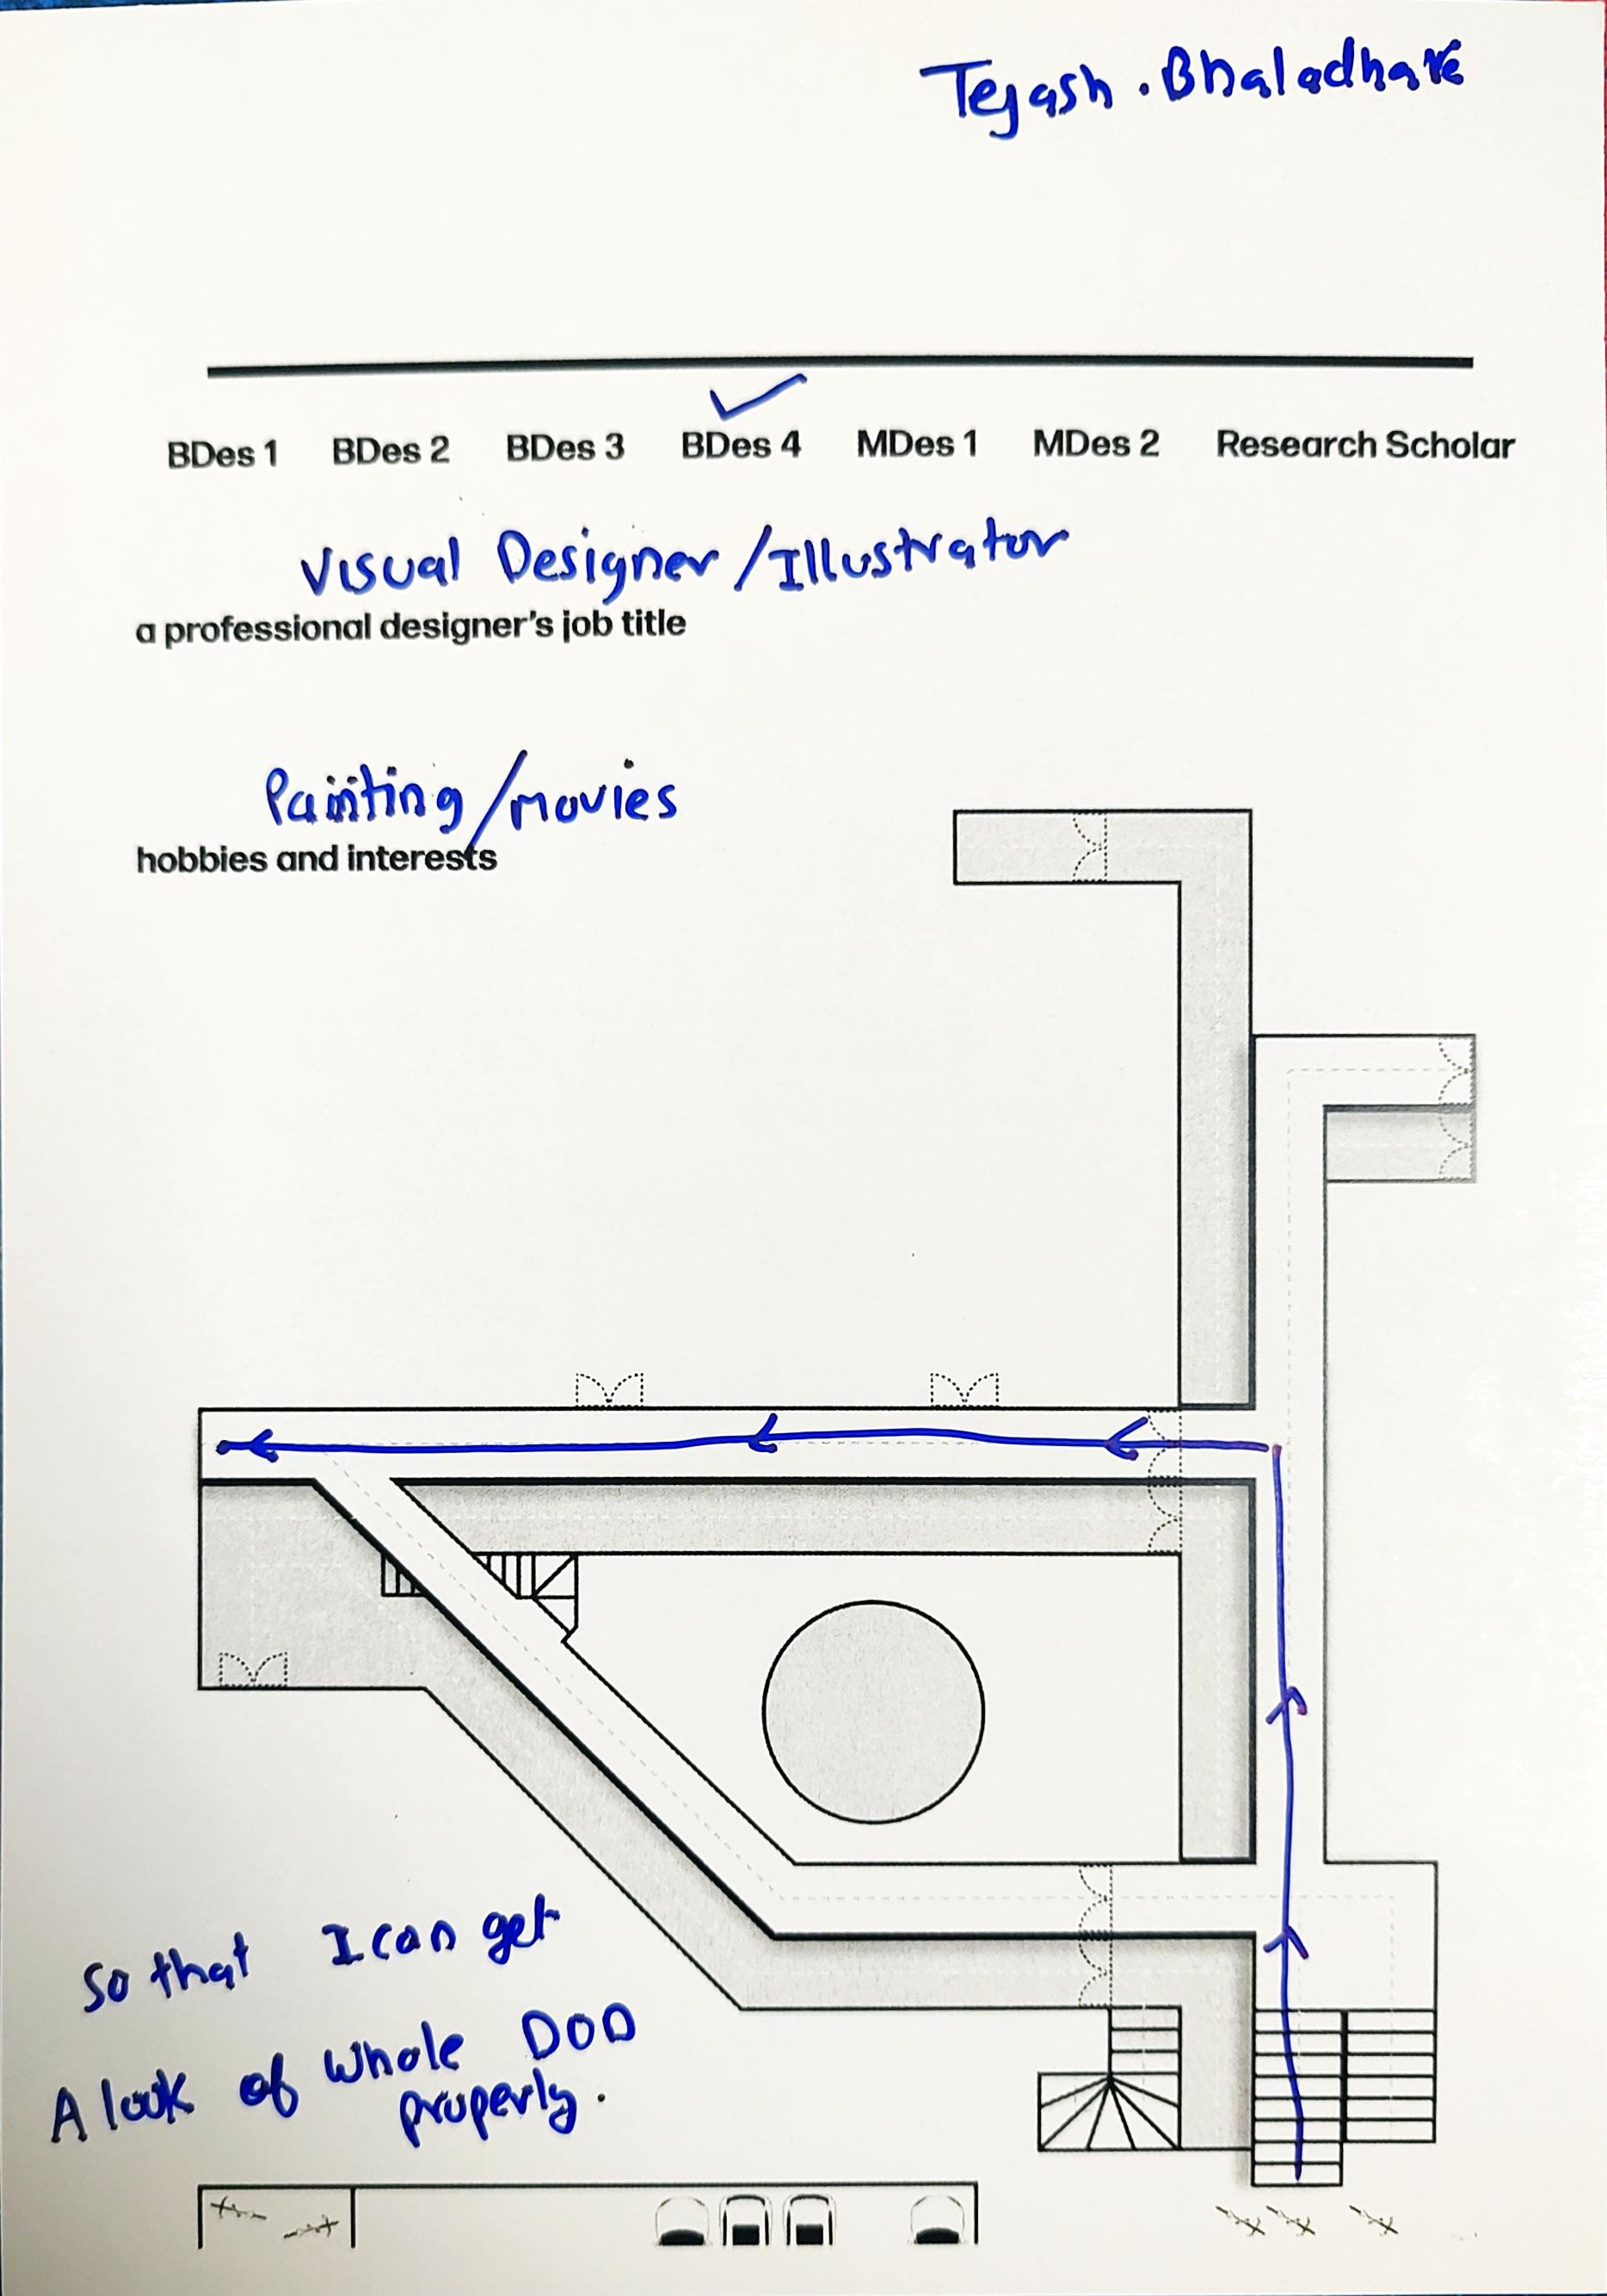 Tejash . Bhaladhare
BDes 1 BDes 2 BDes 3 BDes 4 MDes 1 MDes 2 Research Scholar
Visual Designer / Illustrator
a professional designer's job title
Painting / movies
hobbies and interests
so that I can get
A look of whole DOD
properly.